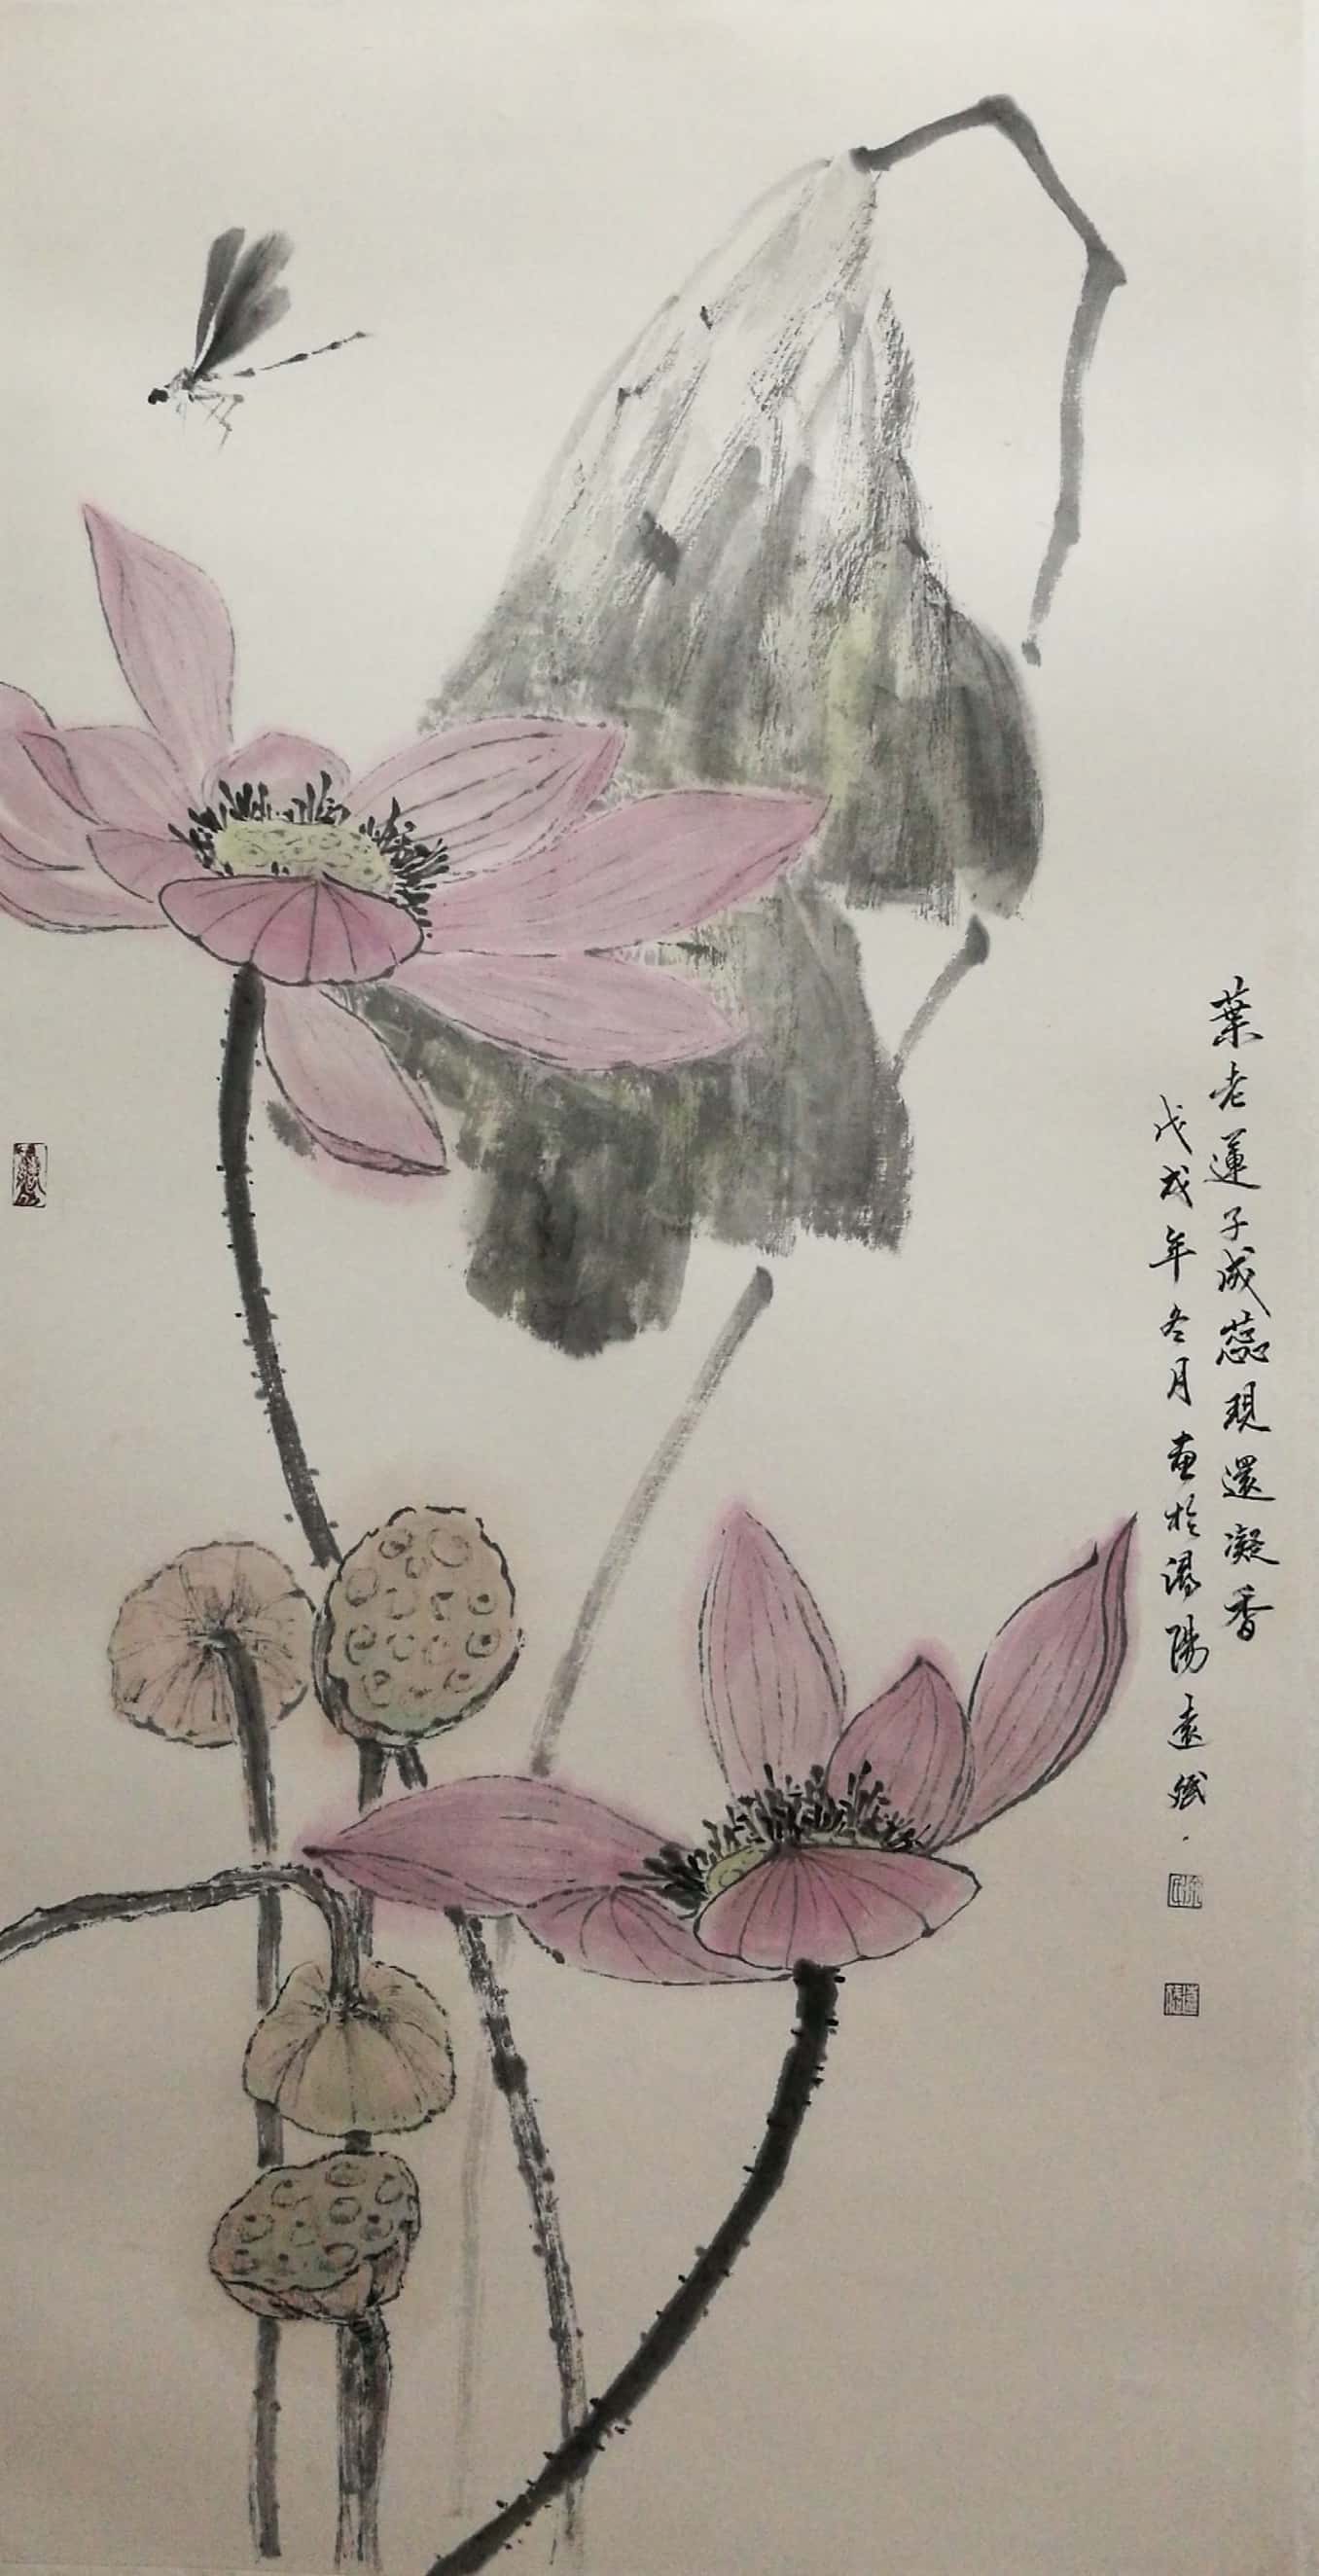 葉老蓮子成蕊現還凝香
戊戌年冬月畫於濕陽遠斌